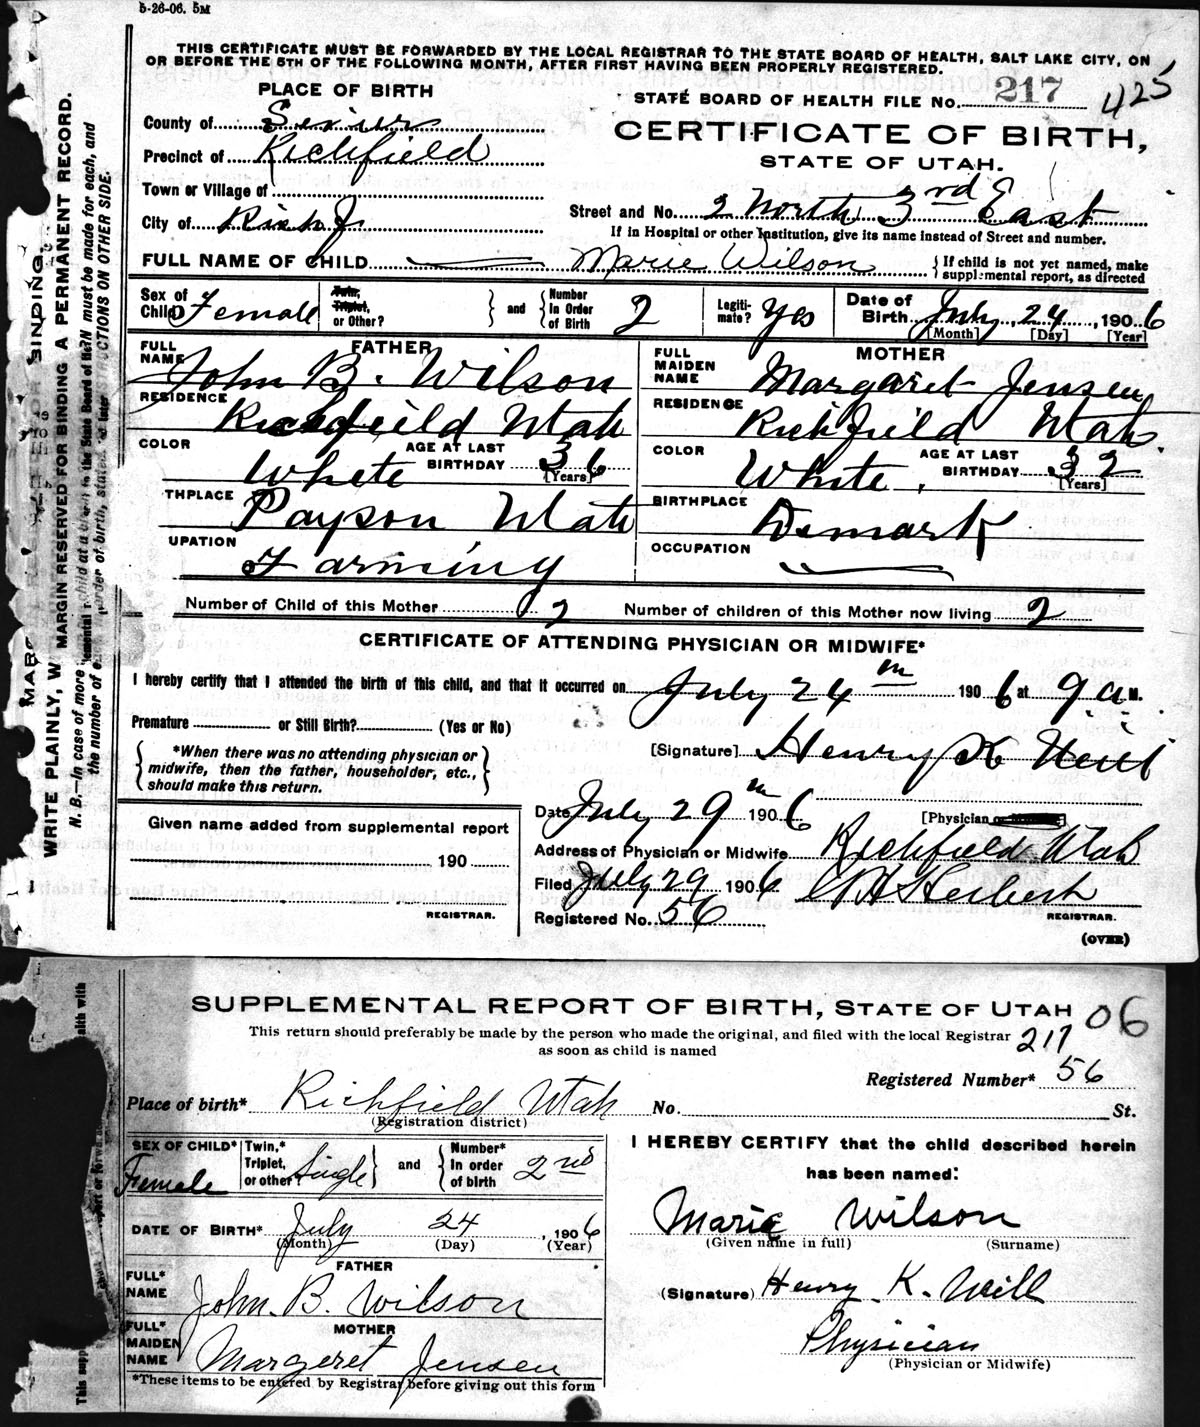 5-26-06. 5M
THIS CERTIFICATE MUST BE FORWARDED BY THE LOCAL REGISTRAR TO THE STATE BOARD OF HEALTH, SALT LAKE CITY, ON
OR BEFORE THE 5TH OF THE FOLLOWING MONTH, AFTER FIRST HAVING BEEN PROPERLY REGISTERED.
PLACE OF BIRTH
STATE BOARD OF HEALTH FILE No. 217 425
County of Sevier
CERTIFICATE OF BIRTH,
Precinct of Richfield
STATE OF UTAH.
Town or Village of
Street and No. 2 North 3rd East
City of Richf
If in Hospital or other Institution, give its name instead of Street and number.
FULL NAME OF CHILD Marie Wilson { If child is not yet named, make
supplemental report, as directed
Sex of Child Female
Twin, Triplet, or Other? } and { Number In Order of Birth 2
Legiti-mate? Yes
Date of Birth July 24, 1906
[Month] [Day] [Year]
FATHER
FULL NAME John B. Wilson
MOTHER
FULL MAIDEN NAME Margaret Jensen
RESIDENCE Richfield Utah
RESIDENCE Richfield Utah.
COLOR White
AGE AT LAST BIRTHDAY 36 [Years]
COLOR White.
AGE AT LAST BIRTHDAY 32 [Years]
THPLACE Payson Utah
BIRTHPLACE Demark
UPATION Farming
OCCUPATION
Number of Child of this Mother 2 Number of children of this Mother now living 2
CERTIFICATE OF ATTENDING PHYSICIAN OR MIDWIFE*
I hereby certify that I attended the birth of this child, and that it occurred on July 24th 1906 at 9 a. M.
Premature or Still Birth? (Yes or No)
{ *When there was no attending physician or
midwife, then the father, householder, etc.,
should make this return. }
[Signature] Henry K
Date July 29th 1906
[Physician or Midwife]
Given name added from supplemental report
Address of Physician or Midwife Richfield Utah
190
Filed July 29 1906 Herbert
REGISTRAR. REGISTRAR.
Registered No. 56
(OVER)
BINDING,
WRITE PLAINLY, W
MARGIN RESERVED FOR BINDING A PERMANENT RECORD.
N. B.—In case of more
must be made for each, and
the number of e
order of birth, stated.
INSTRUCTIONS ON OTHER SIDE.
SUPPLEMENTAL REPORT OF BIRTH, STATE OF UTAH 06
This return should preferably be made by the person who made the original, and filed with the local Registrar 217
as soon as child is named
Registered Number* 56
Place of birth* Richfield Utah No. St.
(Registration district)
SEX OF CHILD* Female
Twin,* Triplet, or other Single } and { Number* In order of birth 2nd
I HEREBY CERTIFY that the child described herein
has been named:
DATE OF BIRTH* July 24, 1906
(Month) (Day) (Year)
Marie Wilson
(Given name in full) (Surname)
FATHER
FULL* NAME John. B. Wilson
(Signature) Henry. K. Will
MOTHER
FULL* MAIDEN NAME Margeret Jensen
Physician
(Physician or Midwife)
*These items to be entered by Registrar before giving out this form